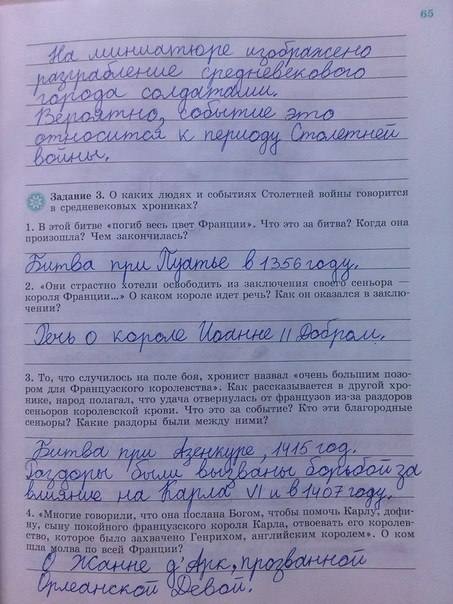 65
На миниатюре изображено
разграбление средневекового
города солдатами.
Вероятно, событие это
относится к периоду Столетней
войны.
Задание 3. О каких людях и событиях Столетней войны говорится
в средневековых хрониках?
1. В этой битве «погиб весь цвет Франции». Что это за битва? Когда она
произошла? Чем закончилась?
Битва при Пуатье в 1356 году.
2. «Они страстно хотели освободить из заключения своего сеньора —
короля Франции...» О каком короле идет речь? Как он оказался в заклю-
чении?
Речь о короле Иоанне II Добром.
3. То, что случилось на поле боя, хронист назвал «очень большим позо-
ром для Французского королевства». Как рассказывается в другой хро-
нике, народ полагал, что удача отвернулась от французов из-за раздоров
сеньоров королевской крови. Что это за событие? Кто эти благородные
сеньоры? Какие раздоры были между ними?
Битва при Азенкуре, 1415 год.
Раздоры были вызваны борьбой за
влияние на Карла VI и в 1407 году.
4. «Многие говорили, что она послана Богом, чтобы помочь Карлу, дофи-
ну, сыну покойного французского короля Карла, отвоевать его королев-
ство, которое было захвачено Генрихом, английским королем». О ком
шла молва по всей Франции?
О Жанне д'Арк, прозванной
Орлеанской Девой.